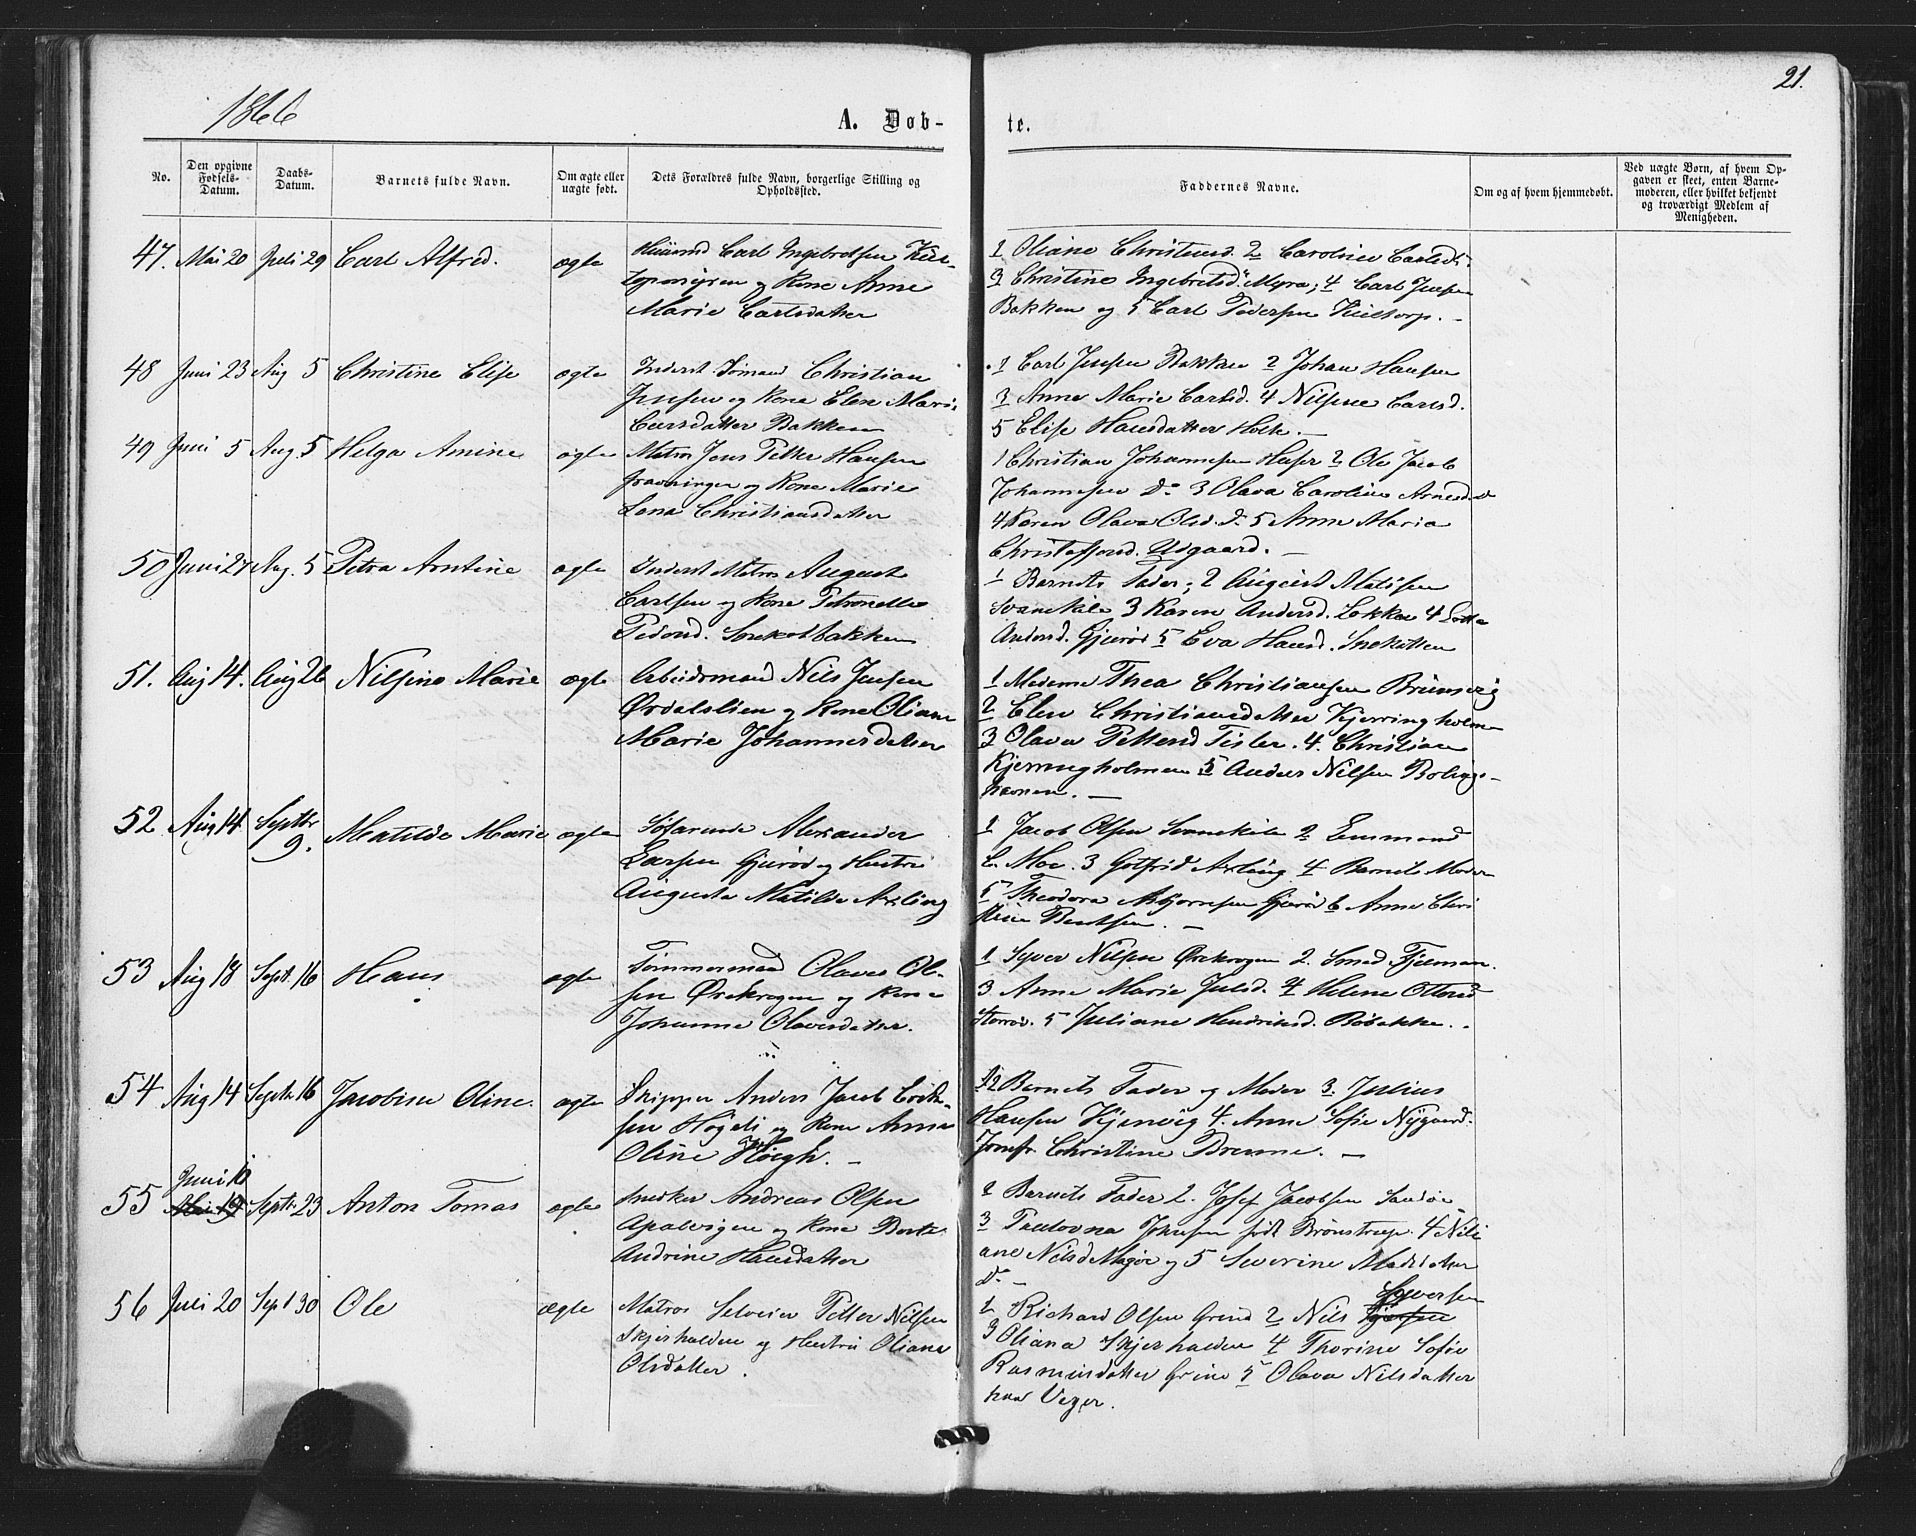 1866
21.
A. Døb-
te.
No.
Den opgivne Fødsels-Datum.
Daabs-Datum.
Barnets fulde Navn.
Om ægte eller uægte født.
Dets Forældres fulde Navn, borgerlige Stilling og Opholdssted.
Faddernes Navne.
Om og af hvem hjemmedøbt.
Ved uægte Børn, af hvem Opgaven er skeet, enten Barnemoderen, eller hvilket bekjendt og troværdigt Medlem af Menigheden.
47. Mai 20 Juli 29 Carl Alfred. ægte
Huusmd Carl Ingebretsen
og Kone Anne
Marie Carlsdatter
1 Oliane Christensd. 2 Caroline Carlsd.
3 Christine Ingebretsd. Myra; 4 Carl Jensen
Bakken og 5 Carl Pedersen
48 Juni 23 Aug 5 Christine Elise ægte
Inderst Sømand Christian
Jensen og Kone Elen Marie
Carsdatter Bakken
1 Carl Jensen Bakken 2 Johan Hansen
3 Anne Marie Carlsd. 4 Nilsine Carlsd.
5 Elise Hansdatter Holk. —
49 Juni 5 Aug. 5 Helga Amine ægte
Matros Jens Petter Hansen
og Kone Marie
Lena Christiansdatter
1 Christian Johannesen 2 Ole Jacob
Johannesen Do 3 Olava Caroline Arnesd. Do
4 Karen Olava Olsd. Do 5 Anne Maria
Christoffersd. Udgaard. —
50 Juni 27 Aug. 5 Petra Arntine ægte
Inderst Matros August
Carlsen og Kone Petronelle
Pedersd.
1 Barnets Fader; 2 August Matisen
Svanekile 3 Karen Andersd. Løkken 4 Lotte
Andersd. Gjurød 5 Eva Hansd.
51. Aug 14. Aug 26 Nilsine Marie ægte
Arbeidsmand Nils Jensen
Ørdalslien og Kone Oliane
Marie Johannesdatter
1 Madame Thea Christiansen
2 Elen Christiansdatter Kjerringholmen
3 Olava Pettersd Tisler. 4. Christian
Kjerringholmen 5 Anders Nilsen
havnen. —
52 Aug 14. Septbr 9. Matilde Marie ægte
Søfarende Alexander
Larsen Gjurød og Hustru
Augusta Matilde Axling
1 Jacob Olsen Svanekile 2 Emmand
C. Moe. 3 Gotfrid Axling 4 Barnets Moder
5 Theodora Gjurød 6 Anne Chri
stine Berthsen. —
53 Aug 18 Sept. 16 Hans ægte
Tømmermand Olaves Ol-
sen Ørekrogen og Kone
Johanne Olavesdatter.
1 Syver Nilsen Ørekrogen 2. Smed Fjelman.
3 Anne Marie Julsd. 4 Helene Ottersd
Storrød. 5 Juliane Hendriksd. Bøbakke.
54 Aug 14 Septr 16 Jacobine Oline. ægte
Skipper Anders Jacob Erik-
sen og Kone Anna
Oline Høegh. —
1 2 Barnets Fader og Moder 3. Julius
Hansen Kjenvig 4. Anne Sofie Nygaard.
Jomfr. Christine Brenne. —
Juni 10
55 Septr 23 Anton Tomas ægte
Snedker Andreas Olsen
Apalvigen og Kone Berte
Andrine Hansdatter
1 Barnets Fader 2. Josef Jacobsen Sandø
3 Paulovna Jensen født Brønstrup. 4 Nili
ane Nilsd Magøe og 5 Severine Madsdatter
Do —
56 Juli 20 Sept 30 Ole ægte
Matros Selveier Petter Nilsen
Skjærhalden og Hustru Oliane
Olsdatter.
1 Richard Olsen Grind 2 Nils Syversen
3 Oliana Skjærhalden 4 Thorine Sofie
Rasmusdatter Grine 5 Olava Nilsdatter
hav Veger.